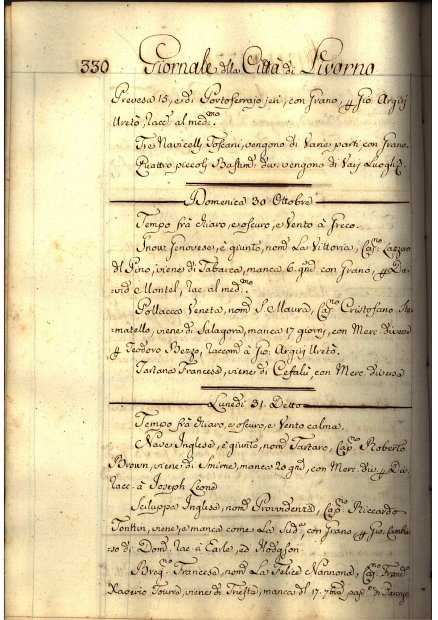 330 Giornale della Città di Livorno
Prevesa 15, e di Portoferrajo jeri, con Grano, p Gio: Argirj
Uretò, racc: al med:mo
Tre Navicelly Toscani, vengono di Varie parti con Grano.
Quattro piccoly Bastim: div: vengono di Varj Luoghi.
Domenica 30 Ottobre
Tempo frà chiaro, e oscuro, e Vento à Greco.
Snow Genovese, è giunto, nom: La Vittoria, Cap:no Lazzaro
del Pino, viene di Tabarca, manca 6. gni con Grano, p Da-
vid Montel, rac. al med:mo
Pollacca Veneta, nom: S. Maura, Cap:no Cristofano
matello, viene di Salagora, manca 17 giorni, con Merc: diverse
p Teodoro Bezzo, raccom: à Gio: Argirj Uretò.
Tartana Francesa, viene di Cefalù, con Merc: diverse
Lunedi 31. Detto
Tempo frà chiaro, e oscuro, e Vento calma.
Nave Inglese, è giunto, nom: Tartaro, Cap:no Roberto
Brown, viene di Smirne, manca 20 gni, con Merc: div: p Div:
racc: à Joseph Leone
Sciluppa Inglesa, nom: Providenza, Cap:no Riccardo
Tonkin, viene, e manca come La Sud:a, con Grano, p Gio:
so di Dom: rac: à Earle, ed Hodgson.
Breg:no Francesa, nom: La Felice Nannona, Cap:no Fran:co
Xaverio Tourra, viene di Triesta, manca dl 17. 7bre